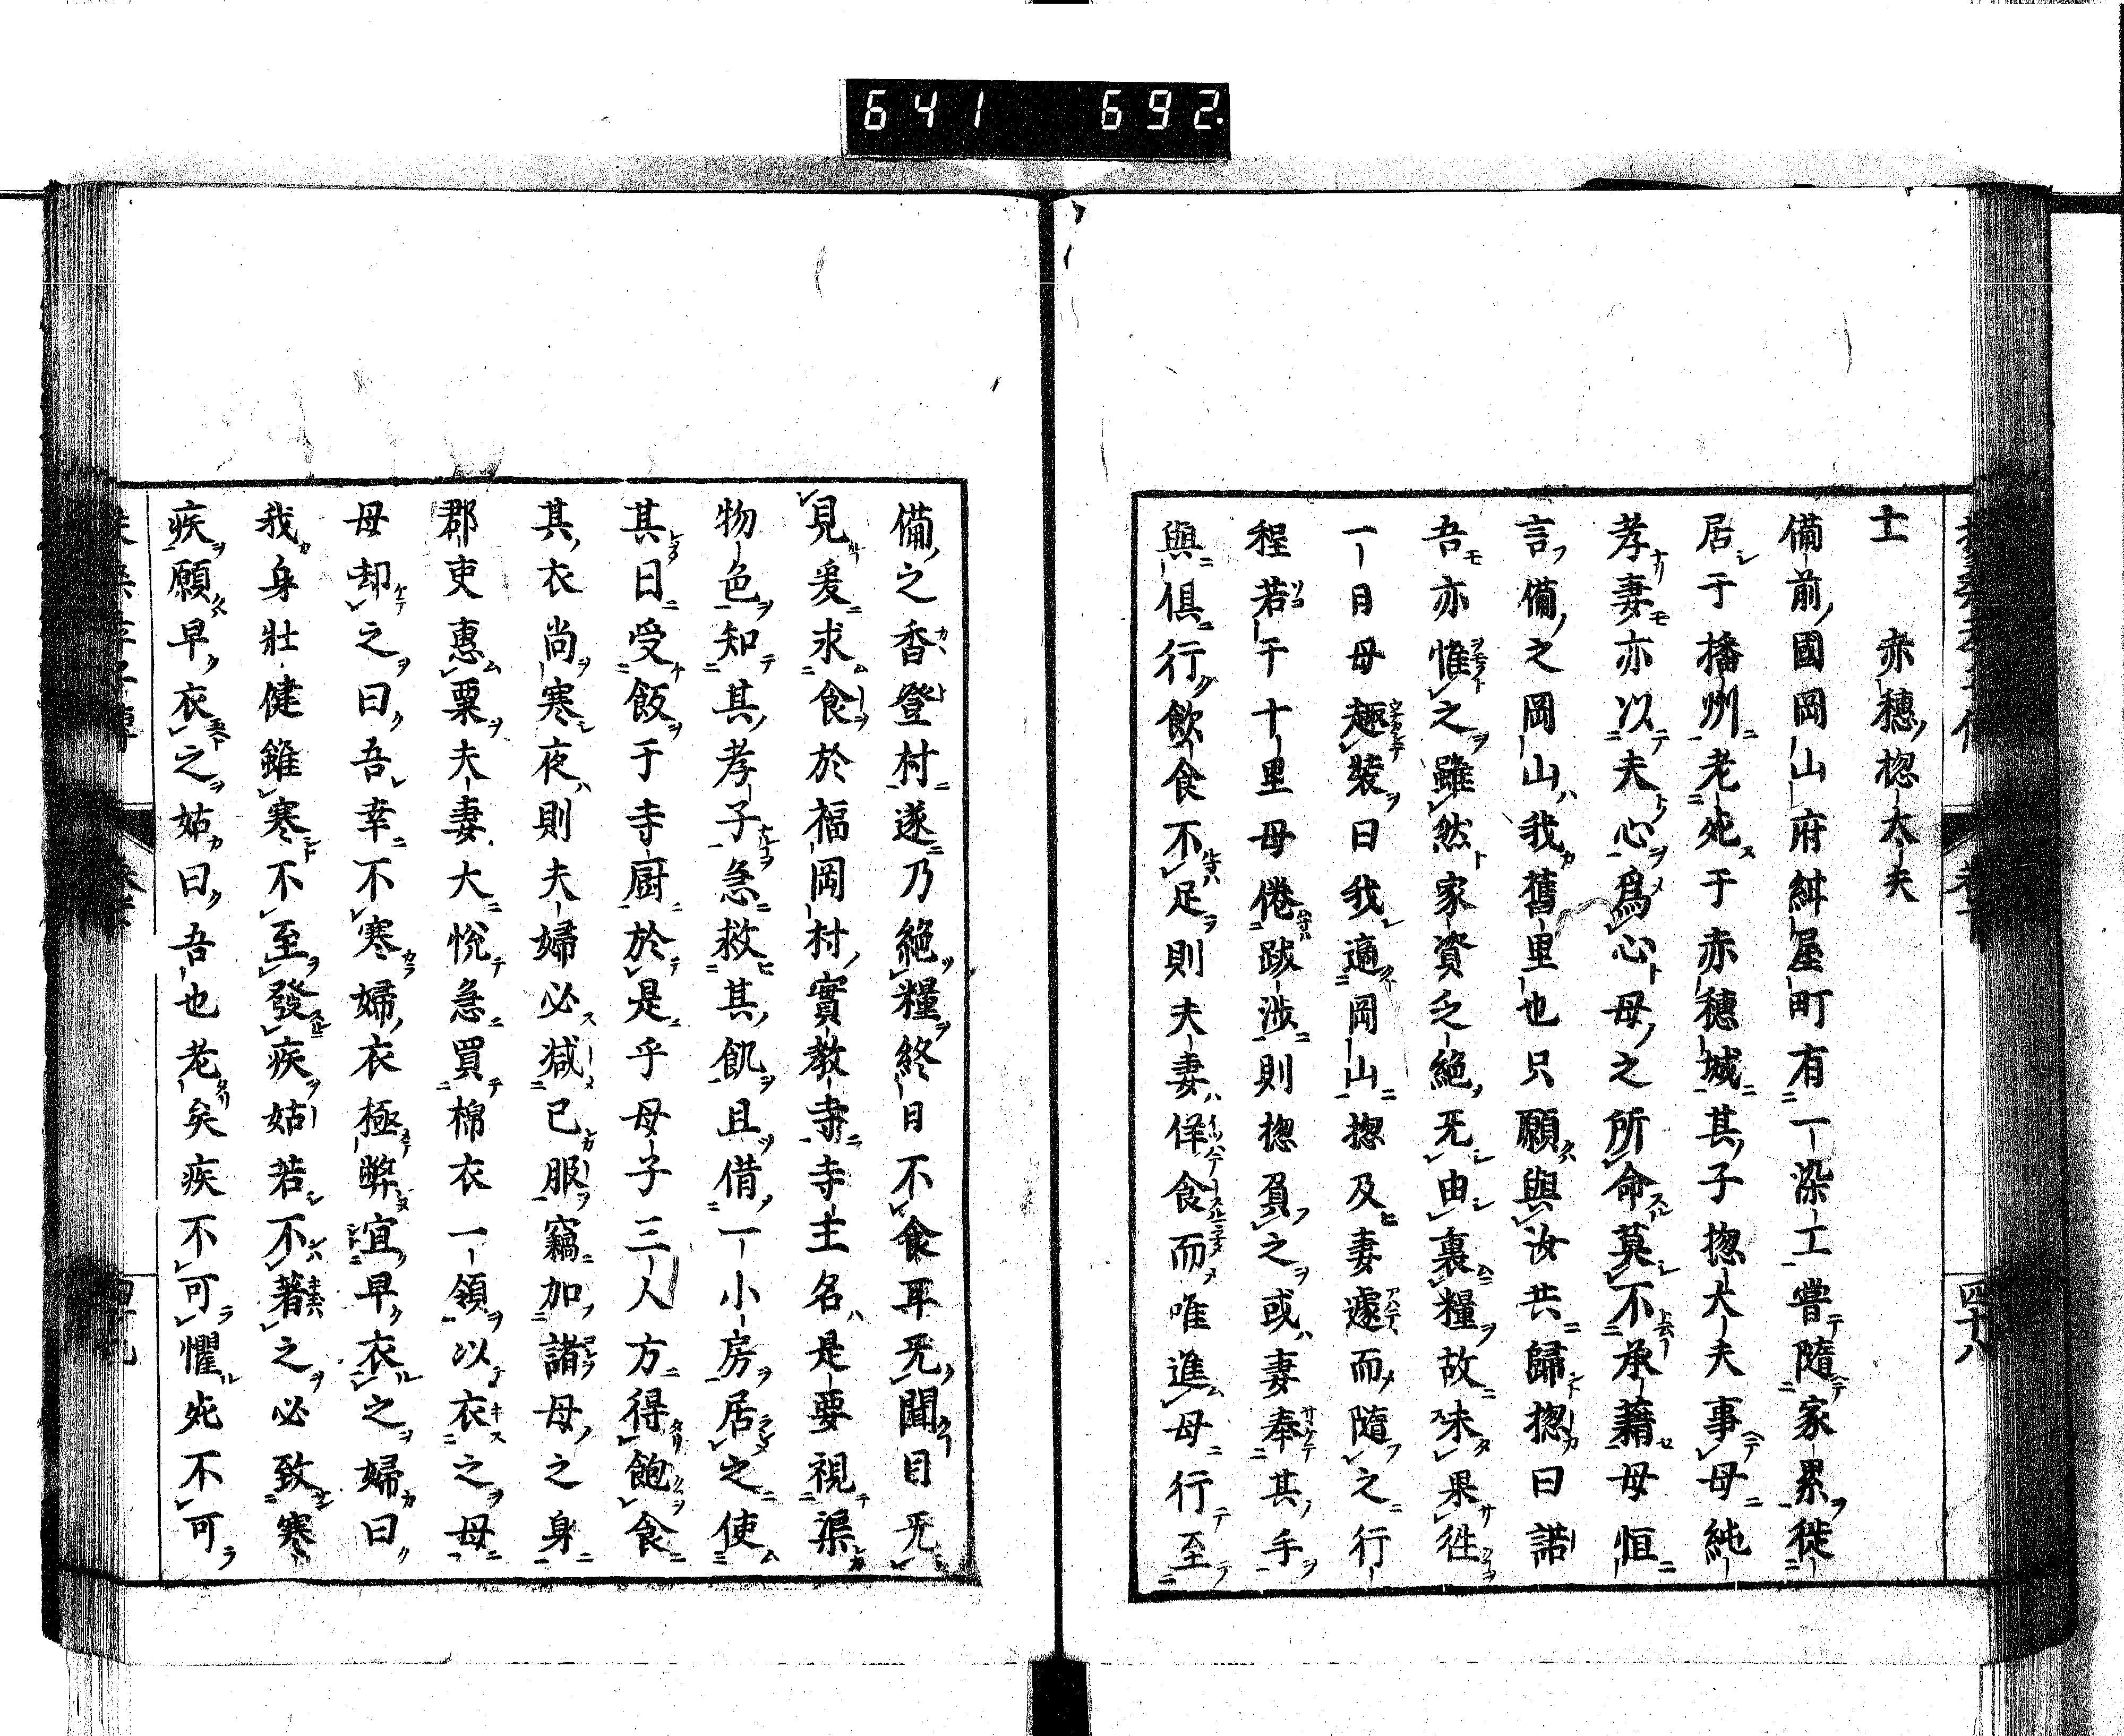 641 692.
士 赤穗惣太夫
備前國岡山府紺屋町有一染工嘗隨家累徙
居于播州老死于赤穗城其子惣大夫事母純
孝妻亦以夫心爲心母之所命莫不承藉母恒
言備之岡山我舊里也只願與汝共歸惣曰諾
吾亦惟之雖然家資乏絶无由裹糧故未果徃
一日母趣裝曰我適岡山惣及妻遽而隨之行
程若干十里母倦跋渉則惣負之或妻奉其手
與俱行飲食不足則夫妻佯食而唯進母行至
四十八
備之香登村遂乃絶糧終日不食耳无聞目无
見爰求食於福岡村實教寺寺主名是要視渠
物色知其孝子急救其飢且借一小房居之使
其日受飯于寺厨於是乎母子三人方得飽食
其衣尚寒夜則夫婦必減已服竊加諸母之身
郡吏惠粟夫妻大悅急買棉衣一領以衣之母
母却之曰吾幸不寒婦衣極弊宜早衣之婦曰
我身壯健雖寒不至發疾姑若不著之必致寒
疾願早衣之姑曰吾也老矣疾不可懼死不可